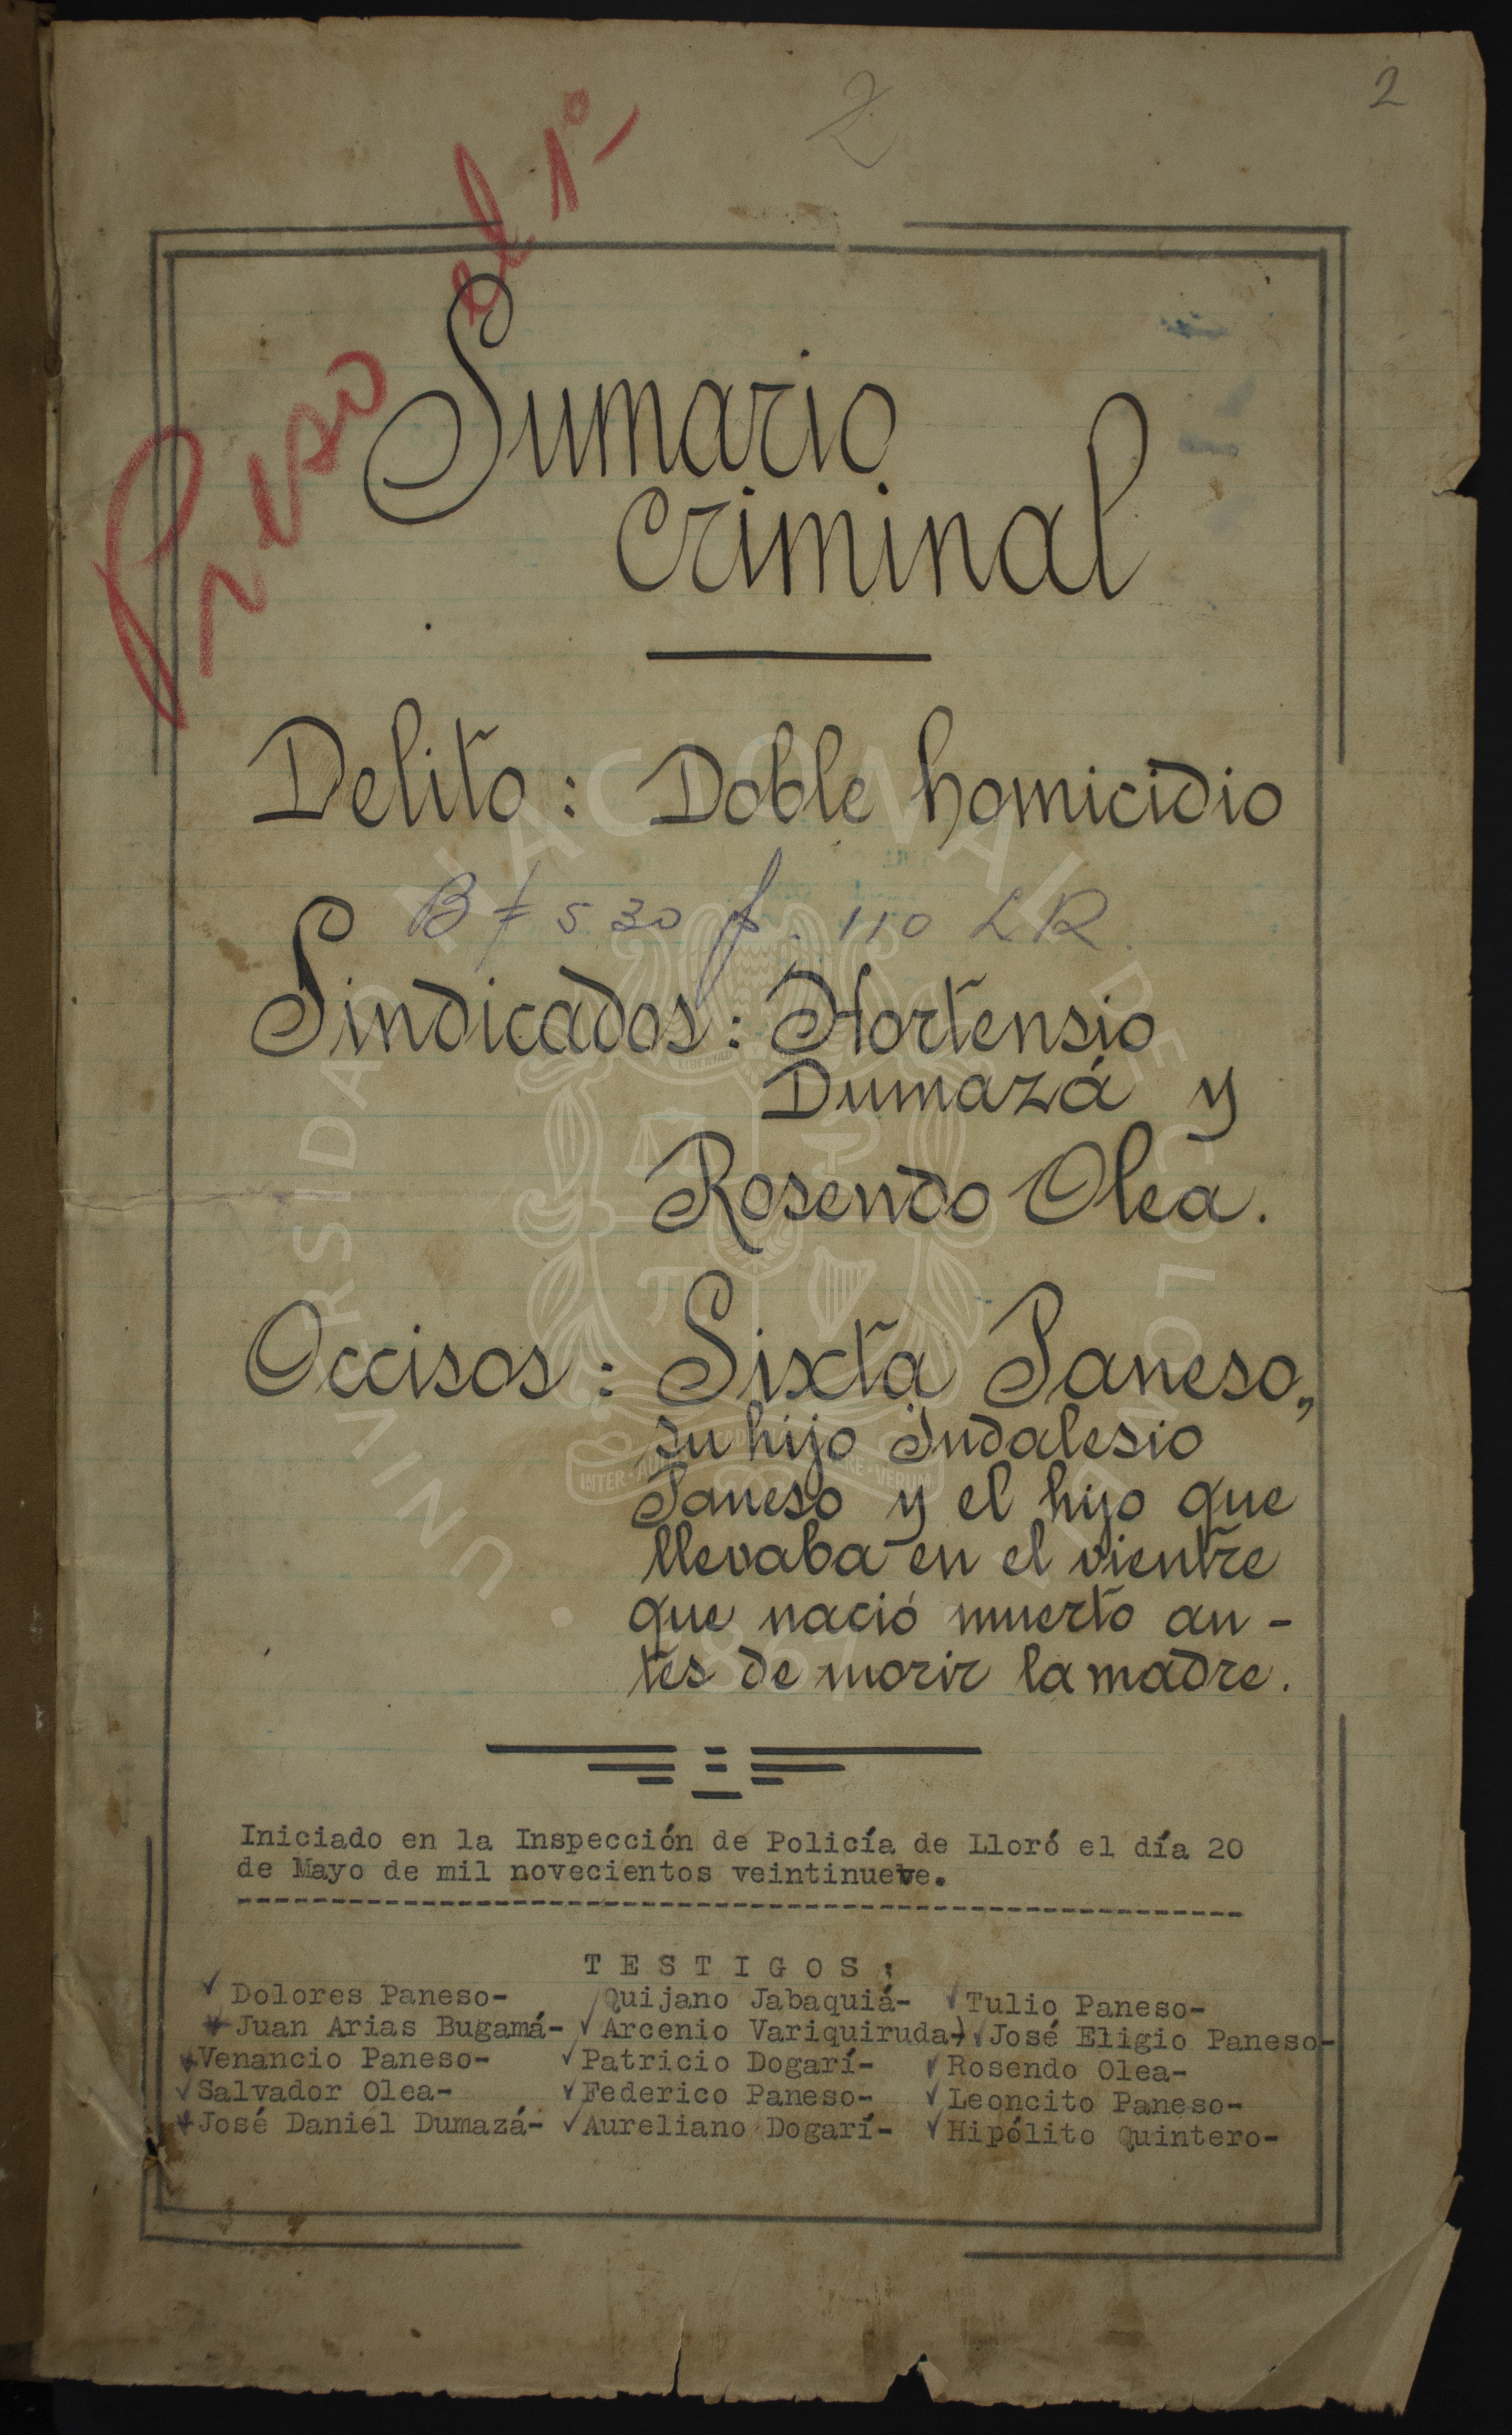 2
2
Preso el 1º
Sumario
criminal
Delito: Doble homicidio
B # 530 f. 110 LR.
Sindicados: Hortensio
Dumazá y
Rosendo Olea.
Occisos: Sixta Paneso,
su hijo Indalesio
Paneso y el hijo que
llevaba en el vientre
que nació muerto an-
tes de morir la madre.
Iniciado en la Inspección de Policía de Lloró el día 20
de Mayo de mil novecientos veintinueve.
TESTIGOS:
Dolores Paneso- Quijano Jabaquiá- Tulio Paneso-
Juan Arias Bugamá- Arcenio Variquiruda-) José Eligio Paneso-
Venancio Paneso- Patricio Dogarí- Rosendo Olea-
Salvador Olea- Federico Paneso- Leoncito Paneso-
José Daniel Dumazá- Aureliano Dogarí- Hipólito Quintero-
UNIVERSIDAD NACIONAL DE COLOMBIA
INTER AULAS VERUM